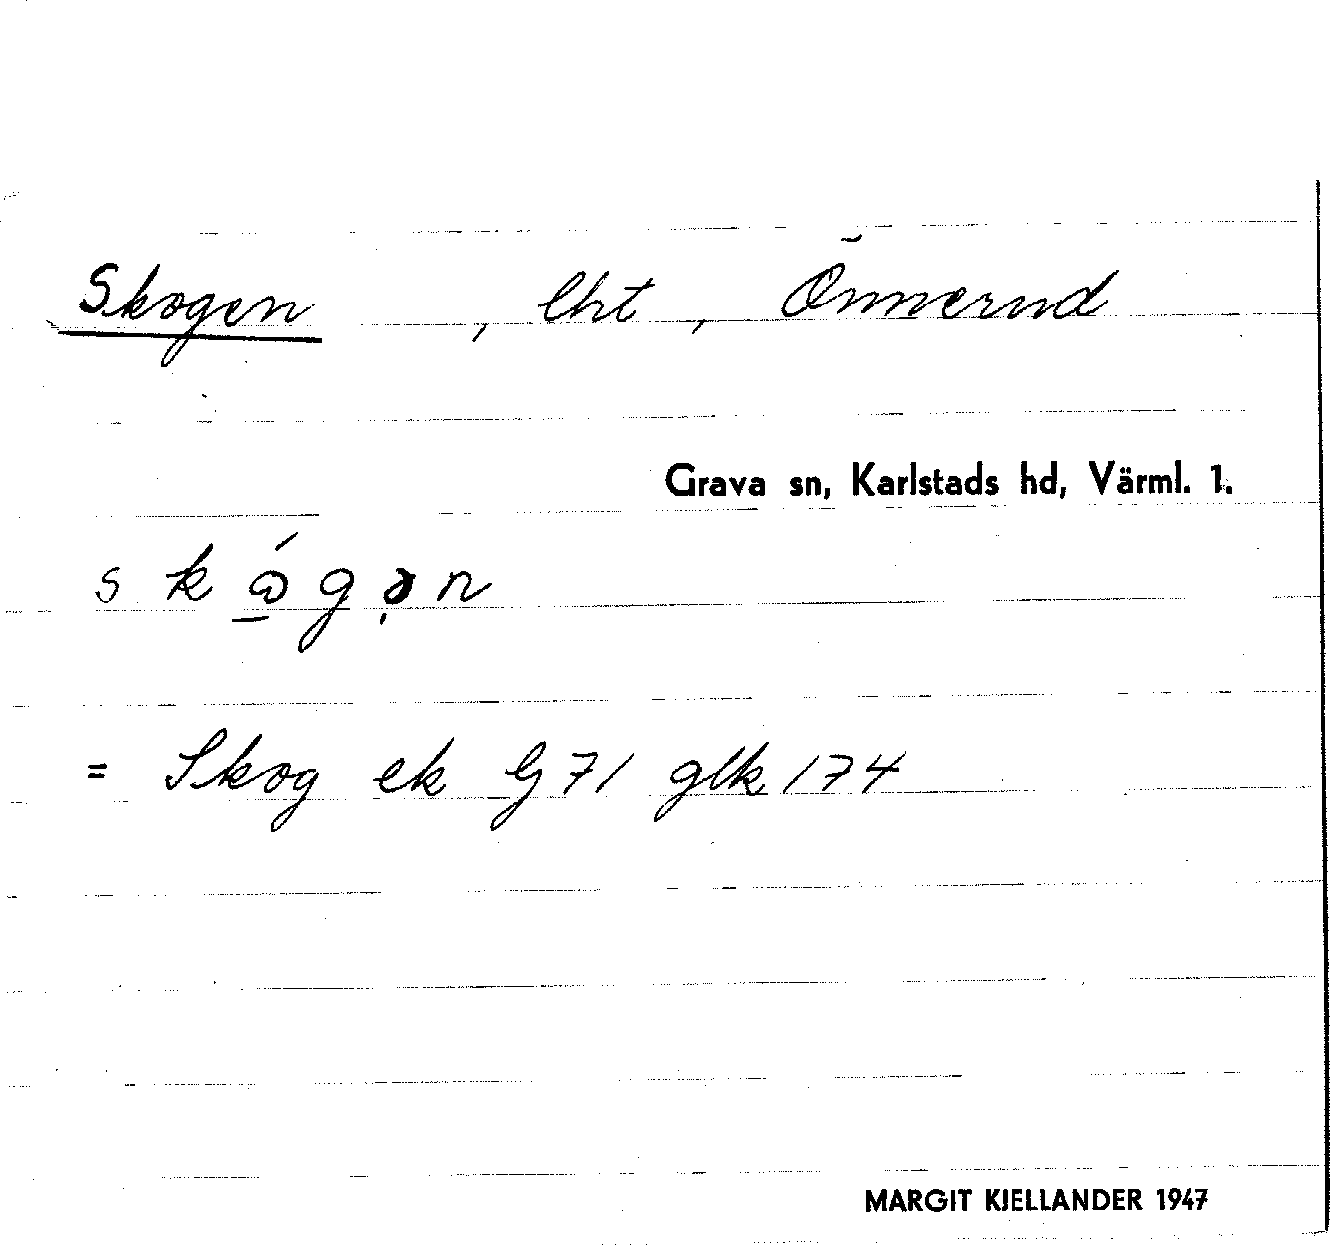 Skogen, lht, Önnerud
Grava sn, Karlstads hd, Värml. 1.
= Skog ek G 71 glk 174
MARGIT KJELLANDER 1947